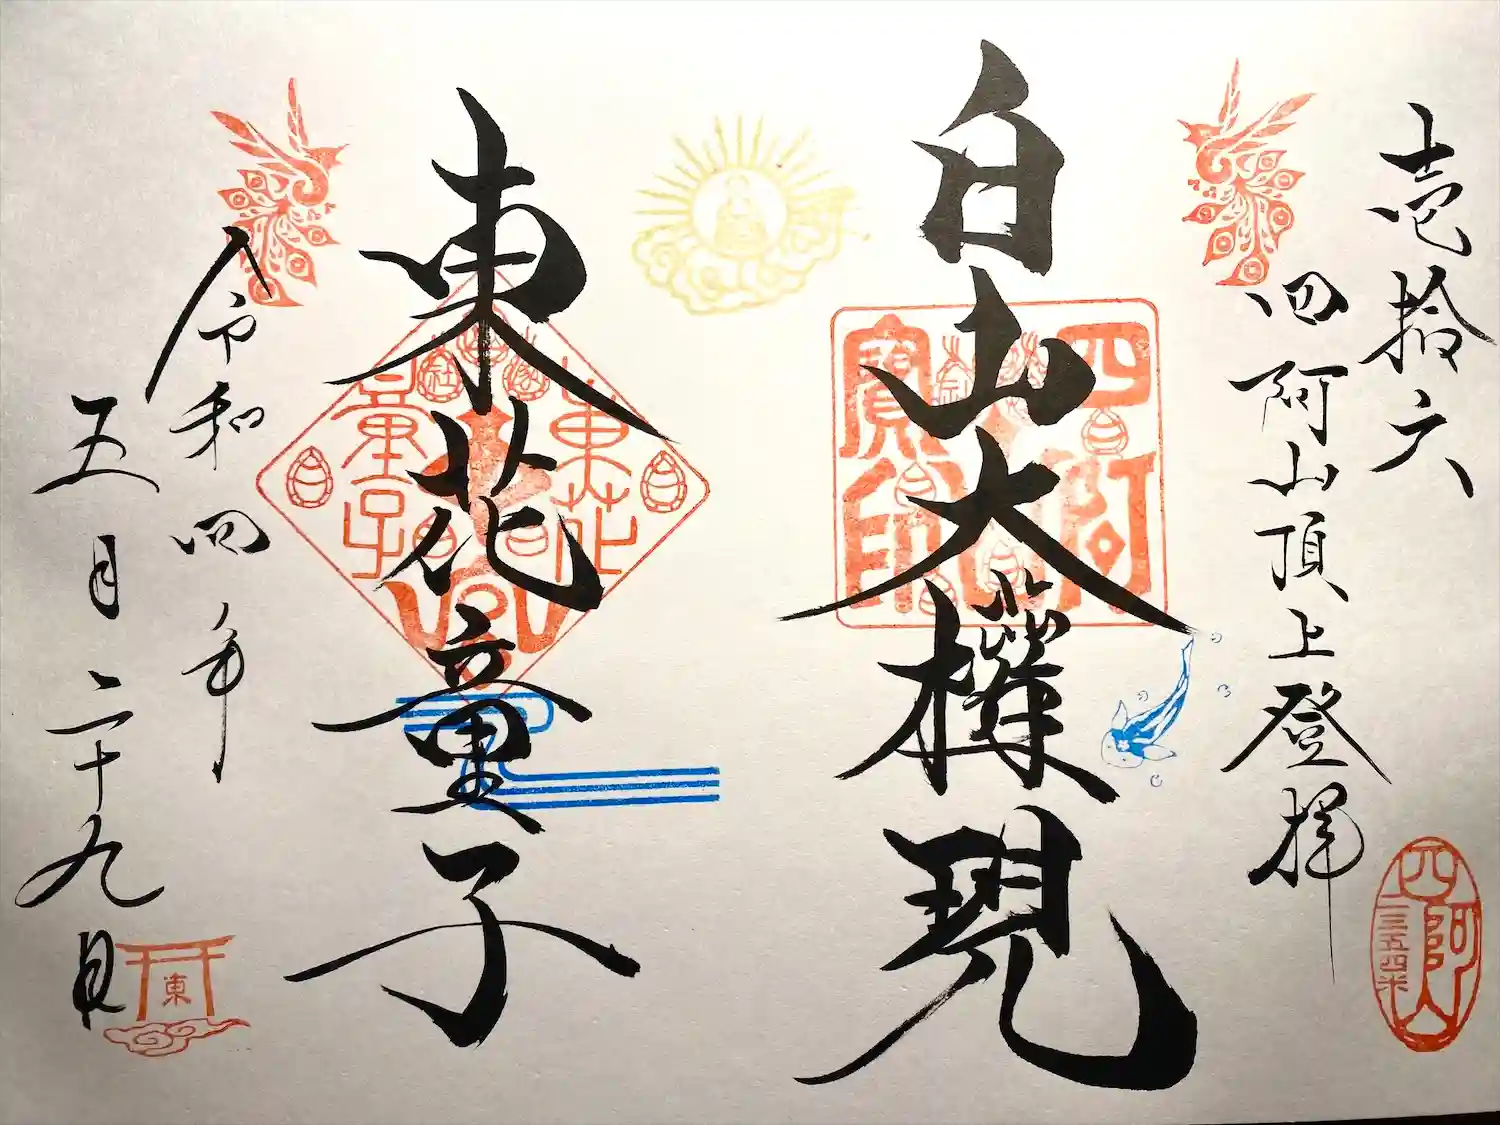 壱拾六
四阿山頂上登拝
白山大権現
四阿山
寳印
東花童子
東花
童子
令和四年
五月二十九日
四阿山
二三五四米
東